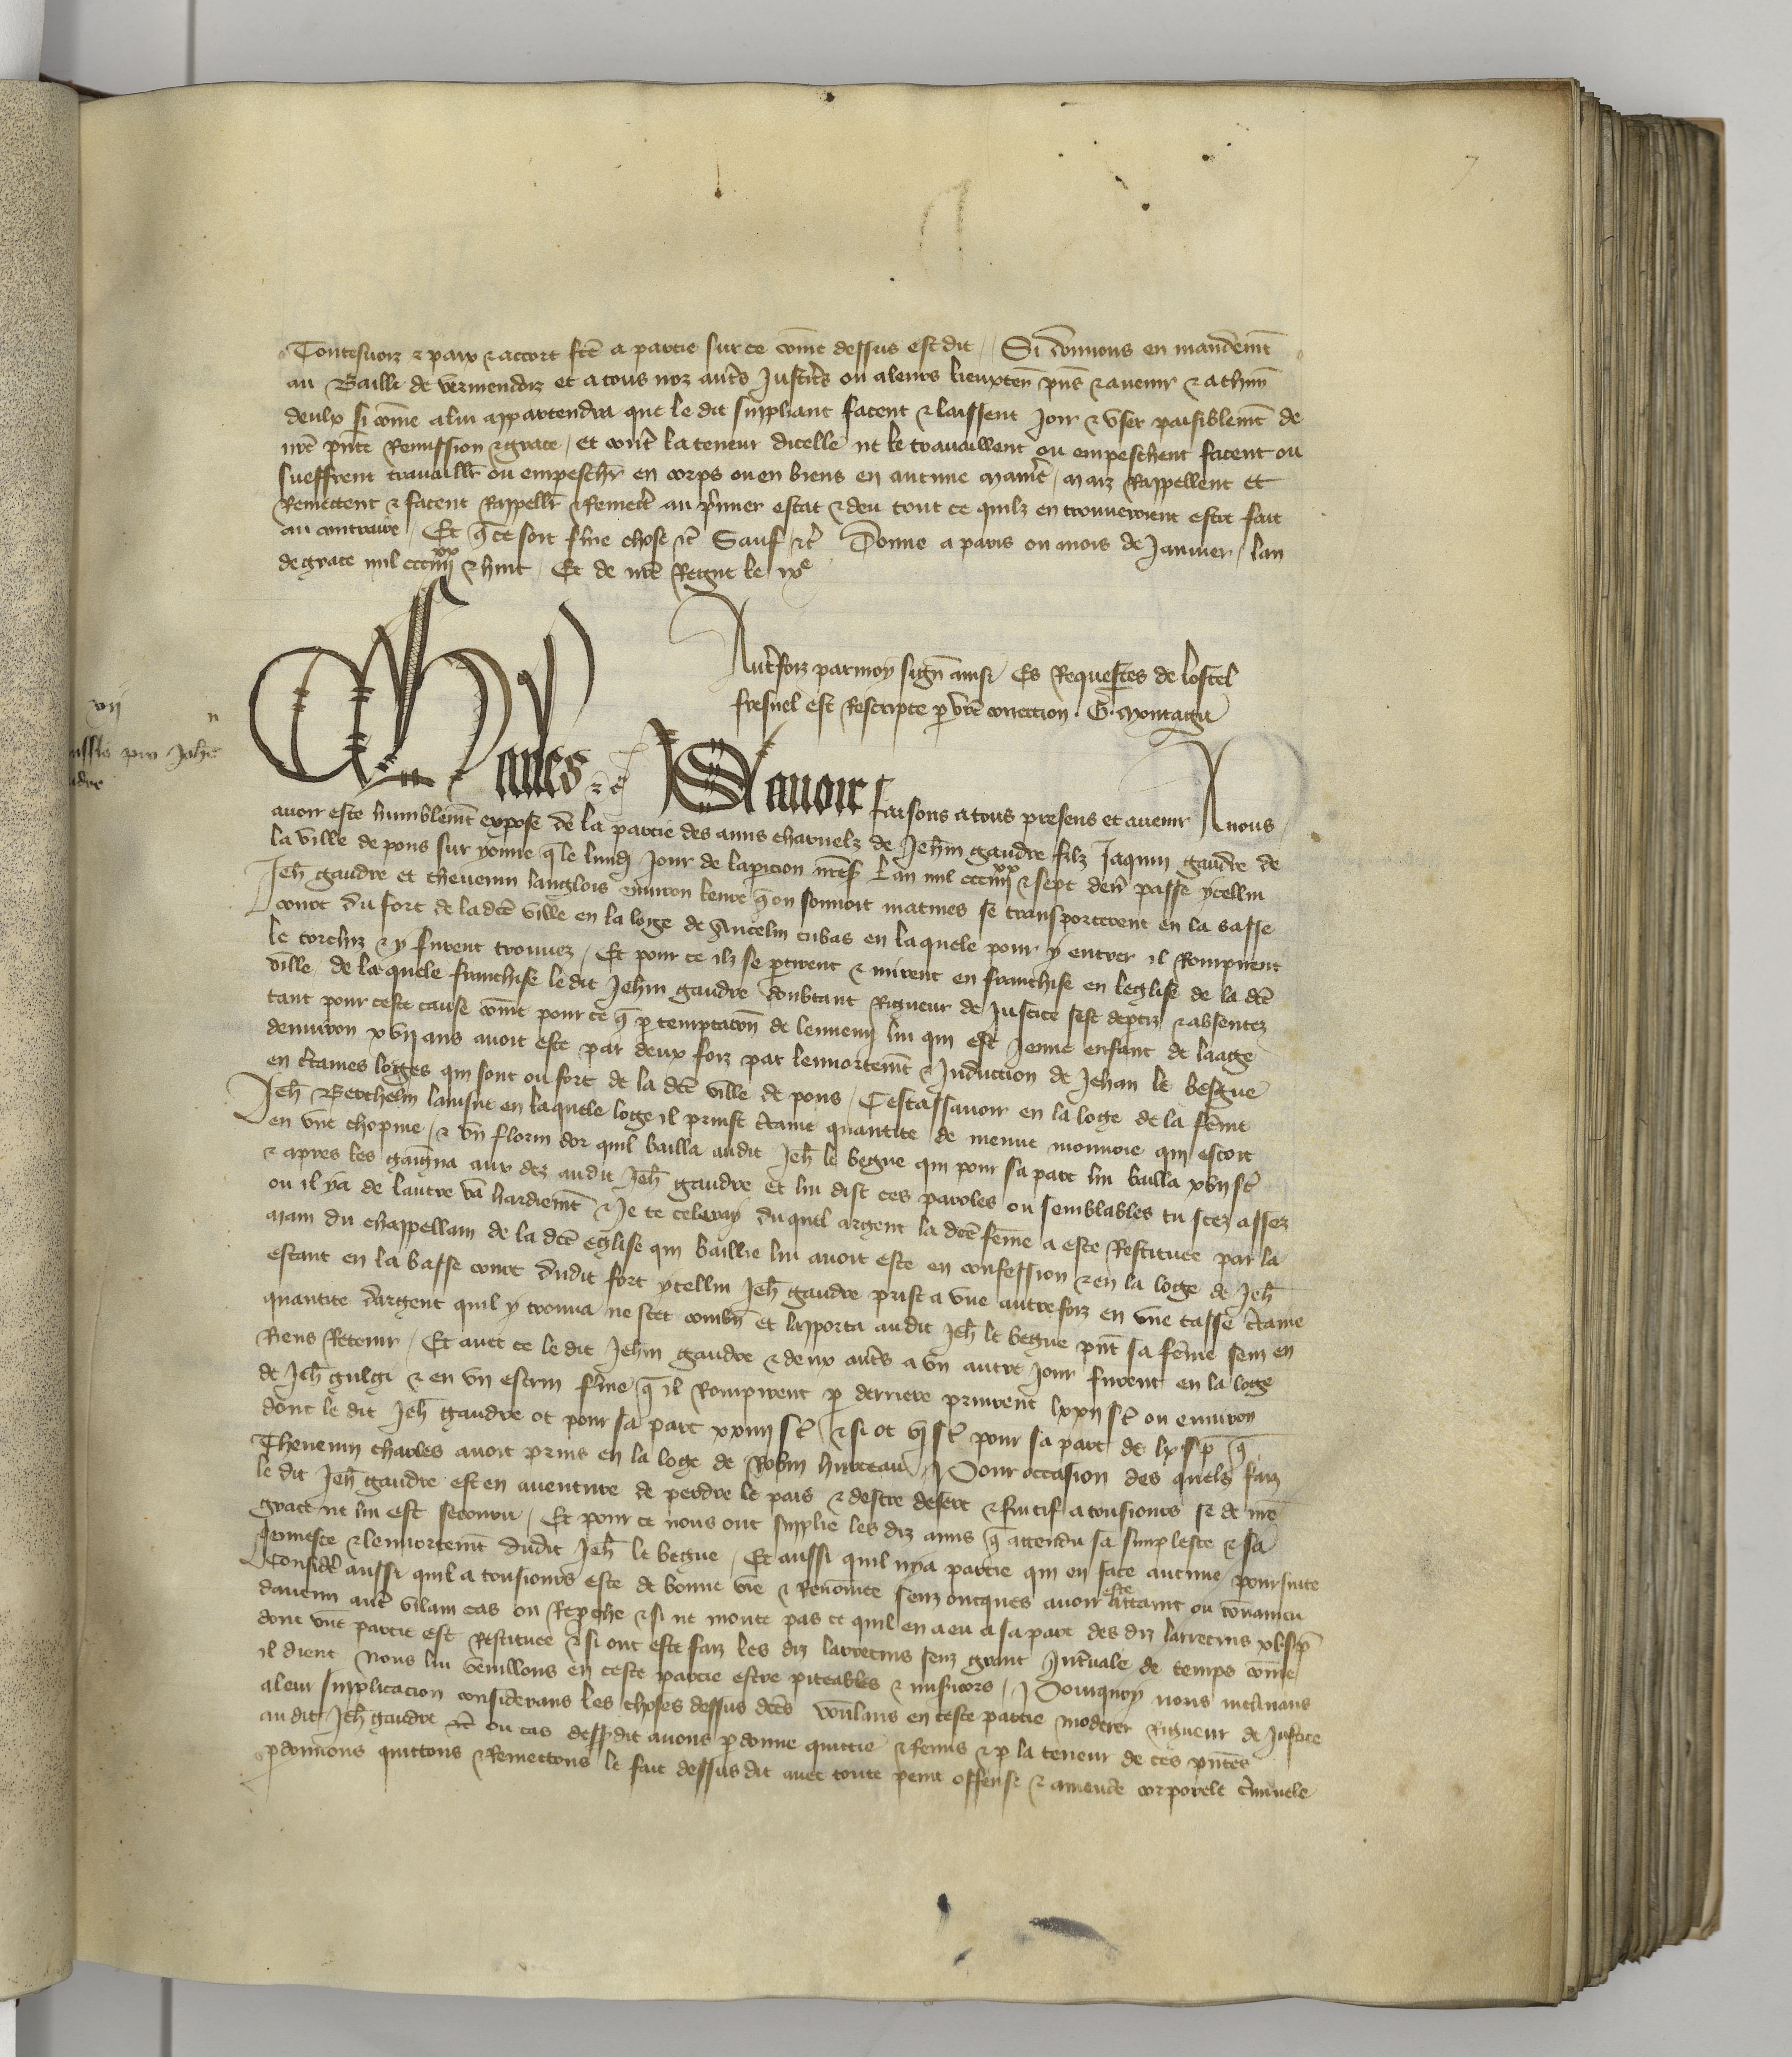 Toutesuoiz & paix & accort fcē a partie sur ce com̄e dessus est dit / Si donnons en mandem̄t
au Bailli de vermendoiz et a tous noz aut͛s Justic͛s ou a leurs lieuxten̄ p̄ns & auenir & a chūn
deulx si com̄e a lui appartendra que le dit suppliant facent & laissent Joir & vser paisiblem̄t de
nr̄e p̄nte Remission & grace / et cont͛ la teneur dicelle ne le trauaillent ou empeschent facent ou
sueffrent trauaill͛ ou empesch͛ en corps ou en biens en aucune manie͛ / maiz Rappellent et
Remettent & facent Rappell͛ & Remect͛ au p̄mier estat & deu tout ce quilz en trouueroient estre fait
au contraire / Et q̄ ce soit fer̄me chose &c̄ Sauf &c̄ Donne a paris ou mois de Januier / lan
de grace mil cccıııı xx & huit / Et de nr̄e Regne le ixe
Aut͛foiz par moy sign̄ ainsi Es Requestes de lostel
fresnel est Rescripte p̱ vr̄e correction . G. Montagu
vij
n
Jeh̄
Charles &c̄ Sauoir faisons a tous presens et auenir A nous
auoir este humblem̄t expose de la partie des amis charnelz de Jeh̄in gaudre filz Jaquin gaudre de
la ville de pons sur yonne q̄ le lundj Jour de lapicion n̄tes Lan mil cccıııı xx & sept den̄ passe ycellui
Jeh̄ gaudre et theuenin langlois enuiron leure q̄ on sonnoit matines se transporterent en la basse
court du fort de la dc̄e ville en la loge de Ancelin cubas en laquele pour y entrer il Rompirent
le torchiz & y furent trouuez / Et pour ce ilz se p̱tirent & mirent en franchise en leglise de la dc̄e
ville de laquele franchise le dit Jehin gaudre doubtant Rigueur de Justice sest deptiz & absentez
tant pour ceste cause com̄e pour ce q̄ p̱ temptac̄on de lennemj lui qui est Jeune enfant de laage
denuiron xvij ans auoit este par deux foiz par lennortem̄t & Induction de Jehan le besgue
en c̄taines loges qui sont ou fort de la dc̄e ville de pons / Cestassauoir en la loge de la fem̄e
Jeh̄ Berthelin en laquele loge il prinst c̄taine quantite de menue monnoie qui estoit
en vne chopine / & vn florin dor quil bailla audit Jeh̄ le begue qui pour sa part lui bailla xvij s͛
& apres les gaigna aux dez audit Jeh̄ gaudre et lui dist ces paroles ou semblables tu scez assez
ou il y a de lautre va hardiem̄t & Je te celeray duquel argent la dc̄e fem̄e a este Restituee par la
main du chappellain de la dc̄e eglise qui baillie lui auoit este en confession & en la loge de Jeh̄
estant en la basse court dudit fort ycellui Jeh̄ gaudre prist a vne autrefoiz en vne tasse c̄taine
quantite dargent quil y trouua ne scet combn̄ et lapporta audit Jeh̄ le begue p̄nt sa fem̄e senz en
Riens Retenir / Et auec ce le dit Jeh̄in gaudre & deux aut͛s a vn autre Jour furent en la loge
de Jeh̄ gulgi & en vn escrin fer̄me q̄ il Rompirent p̱ derriere prinrent lxxij s͛ ou enuiron
dont le dit Jeh̄ gaudre ot pour sa part xxiiij s͛ & si ot vj s͛ pour sa part de lx s̱ p̄ q̄
Theuenin charles auoit prins en la loge de Robin hurteau / Pour occasion des quelz faiz
le dit Jeh̄ gaudre est en auenture de perdre le pais & destre desert & fuitif a tousiours se de nr̄e
grace ne lui est secouru / Et pour ce nous ont supplie les diz amis q̄ attendu sa simplesce & sa
Jeunesce & lennortem̄t dudit Jeh̄ le begue / Et aussi quil ny a partie qui en face aucune poursuite
Consider̄ aussi quil a tousiours este de bonne vie & Renommee senz oncques auoir este Attaint ou conuaincu
dauc̄n aut͛ vilain cas ou Rep̱che & si ne monte pas ce quil en a eu a sa part des diz larrecins xl s̱ p̄
dont vne partie est Restituee & si ont este faiz les diz larrecins senz grant Int͛uale de temps com̄e
il dient Nous lui veuillons en ceste partie estre piteables & mis̄icors / Pourquoy nous inclinans
a leur supplicacion considerans les choses dessus dc̄es voulans en ceste partie moderer Rigueur de Justice
audit Jeh̄ gaudre &c̄ ou cas dess̄dit auons p̱donne quictie & Remis & p̱ la teneur de ces p̄ntes
p̱donnons quittons & Remettons le fait dessus dit auec toute peine offense & amende corporele c̄iminele